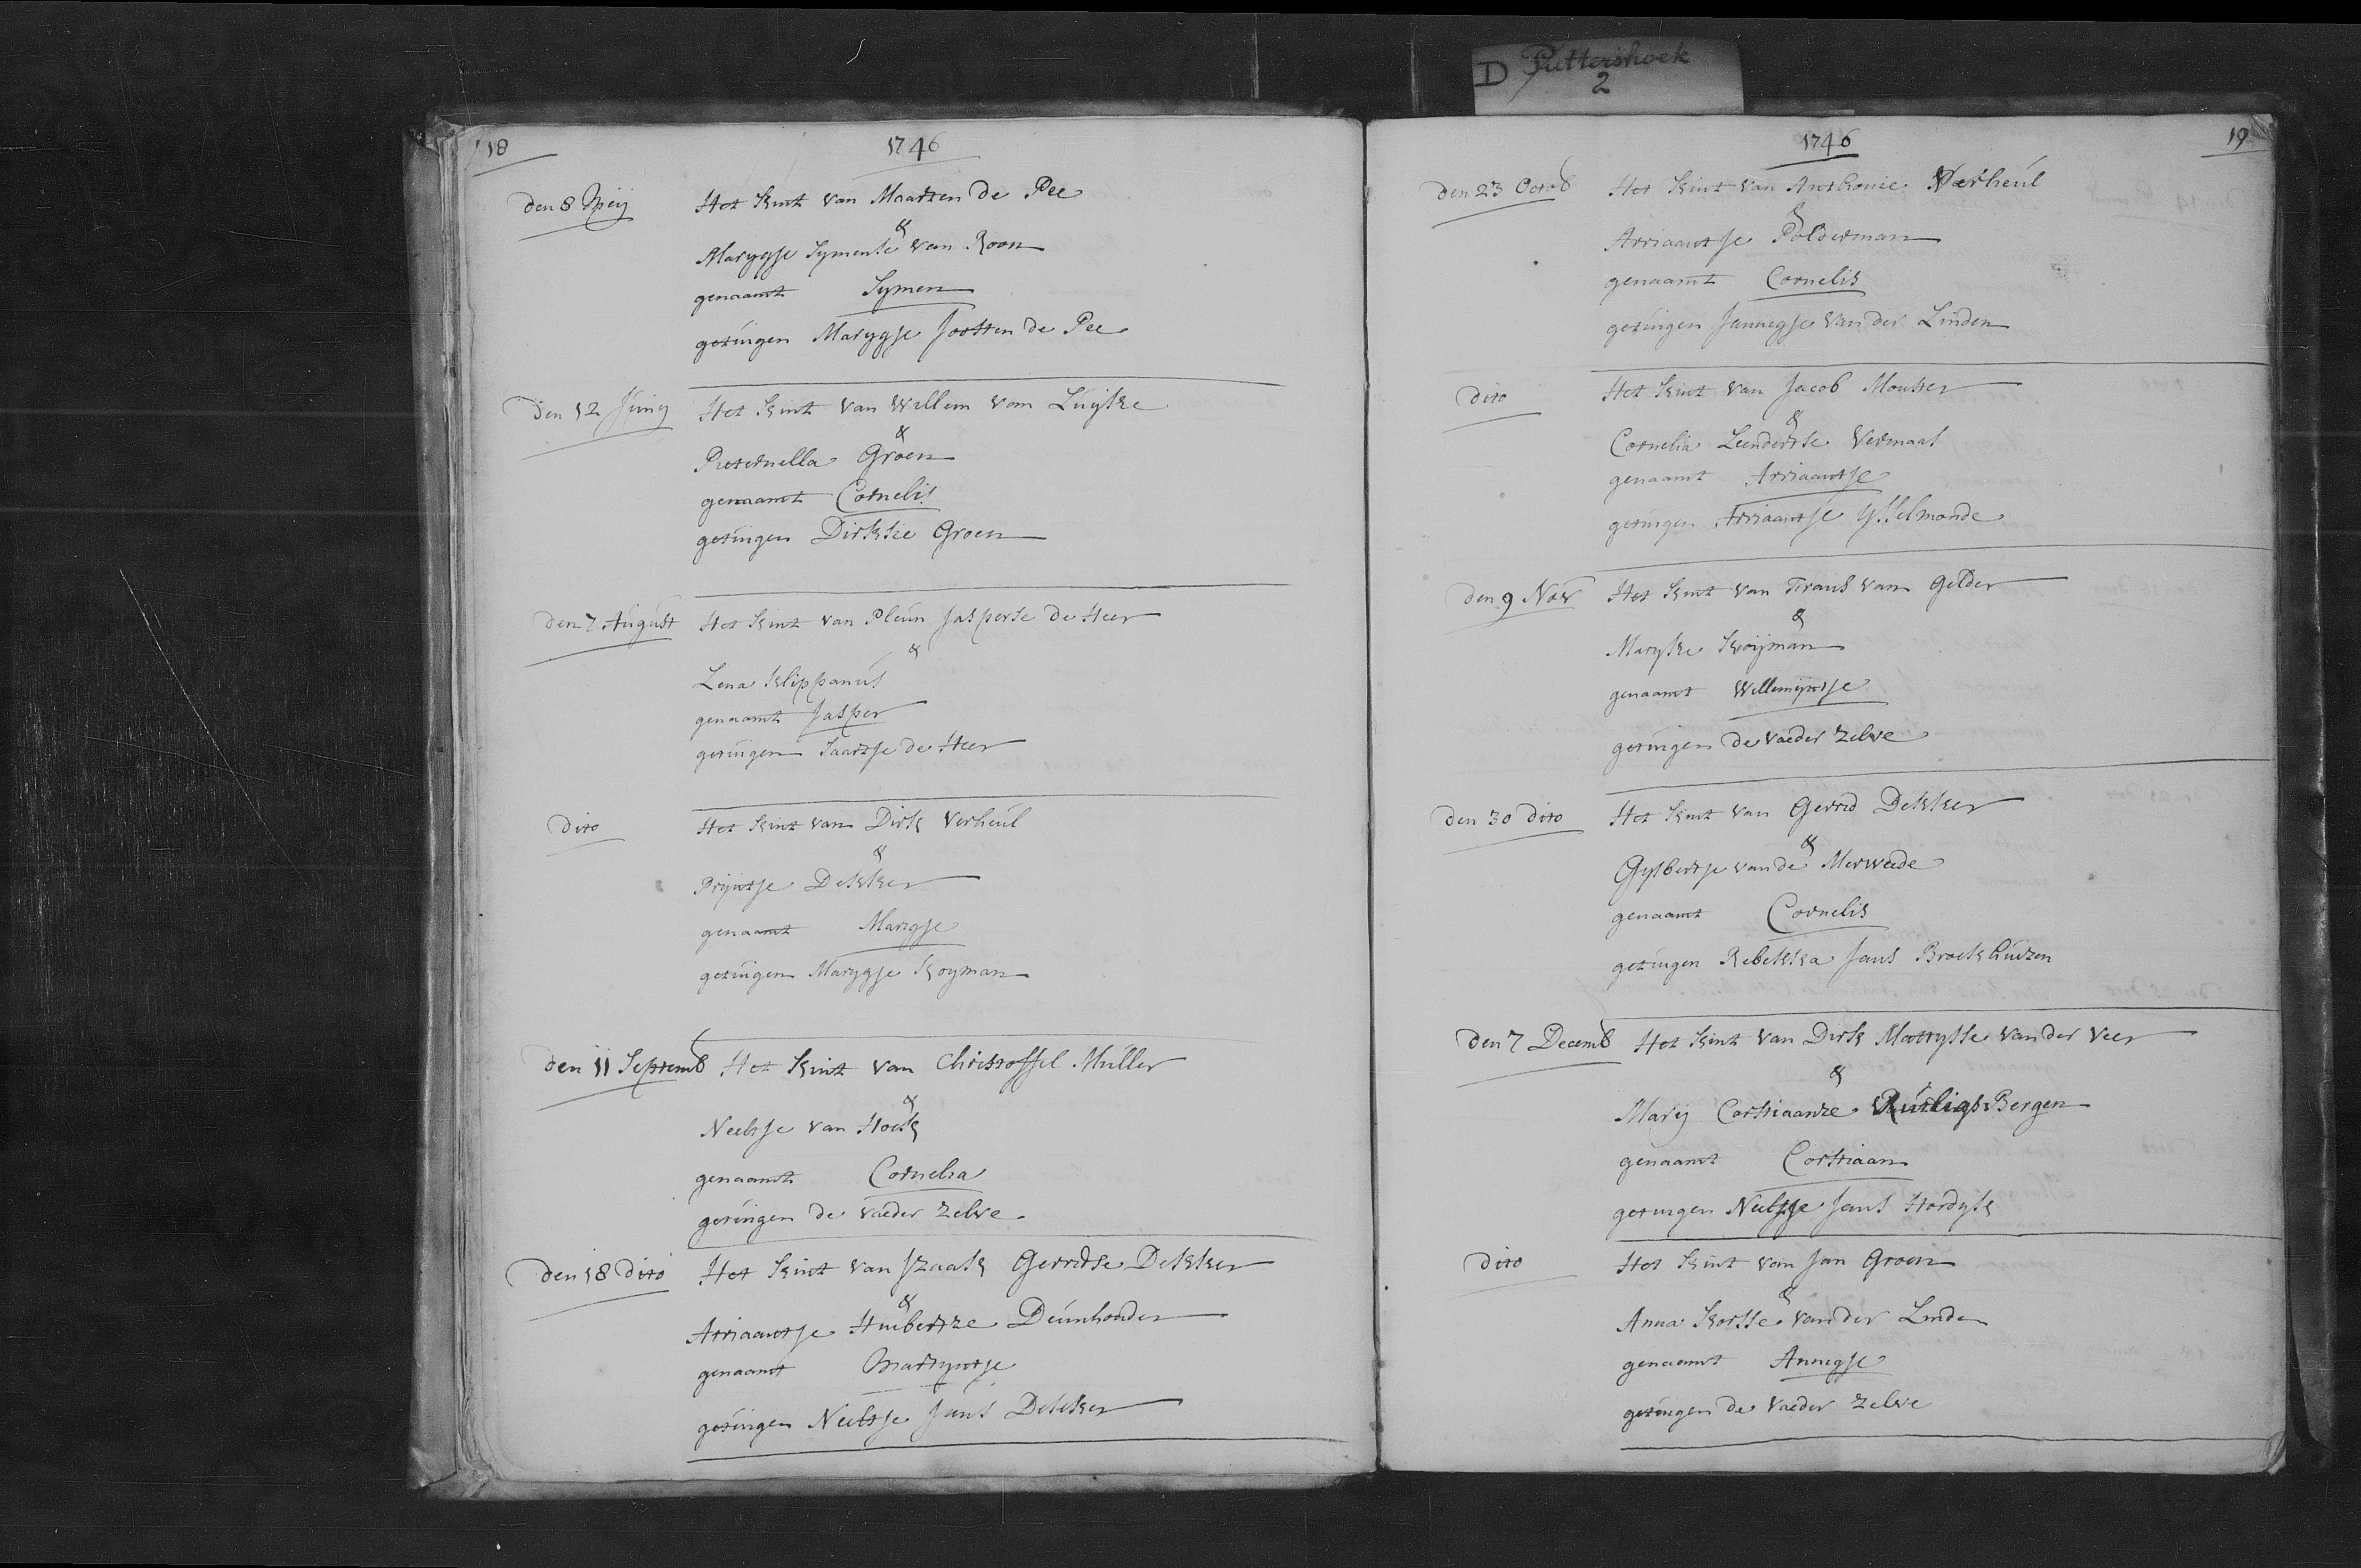 D Puttershoek
2
18
1746
den 8 Meij Het Kint van Maarten de Pee
&
Marygje Symense van Roon
genaamt Symen
getuigen Marygje Joosten de Pee
den 12 Junij Het Kint van Willem van Luijke
&
Pieternella Groen
genaamt Cornelis
getuigen Dirksie Groen
den 7 August Het Kint van Pleun Jasperse de Heer
&
Lena Klippanus
genaamt Jasper
getuigen Saartje de Heer
dito Het Kint van Dirk Verheul
&
Prijntje Dekker
genaamt Marigje
getuigen Marygje Koyman
den 11 Septemb Het Kint van Christoffel Muller
&
Neeltje van Hoek
genaamt Cornelia
getuigen de vaeder zelve
den 18 dito Het Kint van Izaak Gerridse Dekker
&
Arriaantje Huibertze Deunhouder
genaamt Martyntje
getuigen Neeltje Jans Dekker
1746
19
den 23 Octob Het Kint van Anthonie Verheul
&
Arriaantje Polderman
genaamt Cornelis
getuigen Jannegje van der Linden
dito Het Kint van Jacob Mouster
&
Cornelia Leendertse Vermaas
genaamt Arriaantje
getuigen Arriaantje Ysselmonde
den 9 Nov Het Kint van Frans van Gelder
&
Maryke Kooijman
genaamt Willemijntje
getuigen de vaeder zelve
den 30 dito Het Kint van Gerrid Dekker
&
Gysbertje van de Merwede
genaamt Cornelis
getuigen Rebekka Jans Broekhuizen
den 7 Decemb Het Kint van Dirk Mattysse van der Veer
&
Marij Corstiaanze Bergen
genaamt Corstiaan
getuigen Neeltje Jans Hordyk
dito Het Kint van Jan Groen
&
Anna Korsse van der Linden
genaamt Annegje
getuigen de vaeder zelve